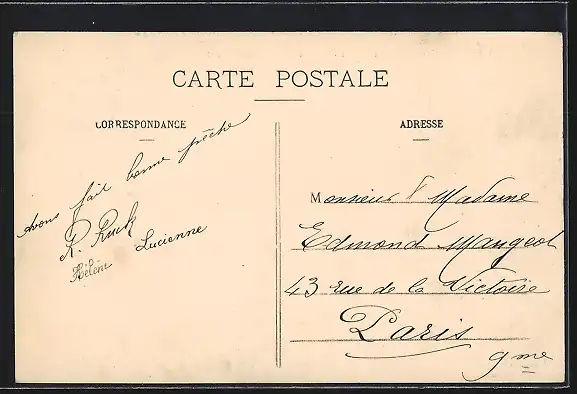 CARTE POSTALE
CORRESPONDANCE
Avons fait bonne pêche
R. Ruck
Lucienne
Hélène
ADRESSE
Monsieur & Madame
Edmond Mangeot
43 rue de la Victoire
Paris
9me